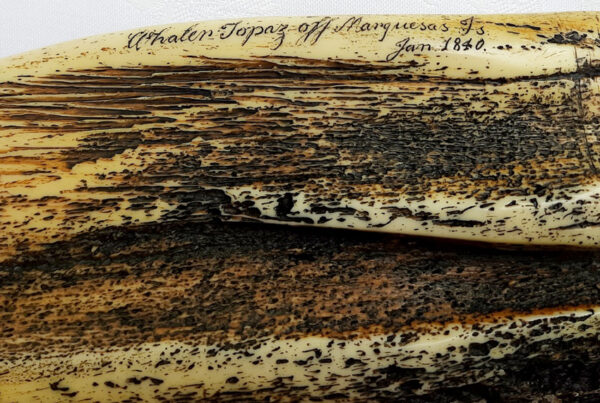 Whaler Topaz off Marquesas Is
Jan. 1840.